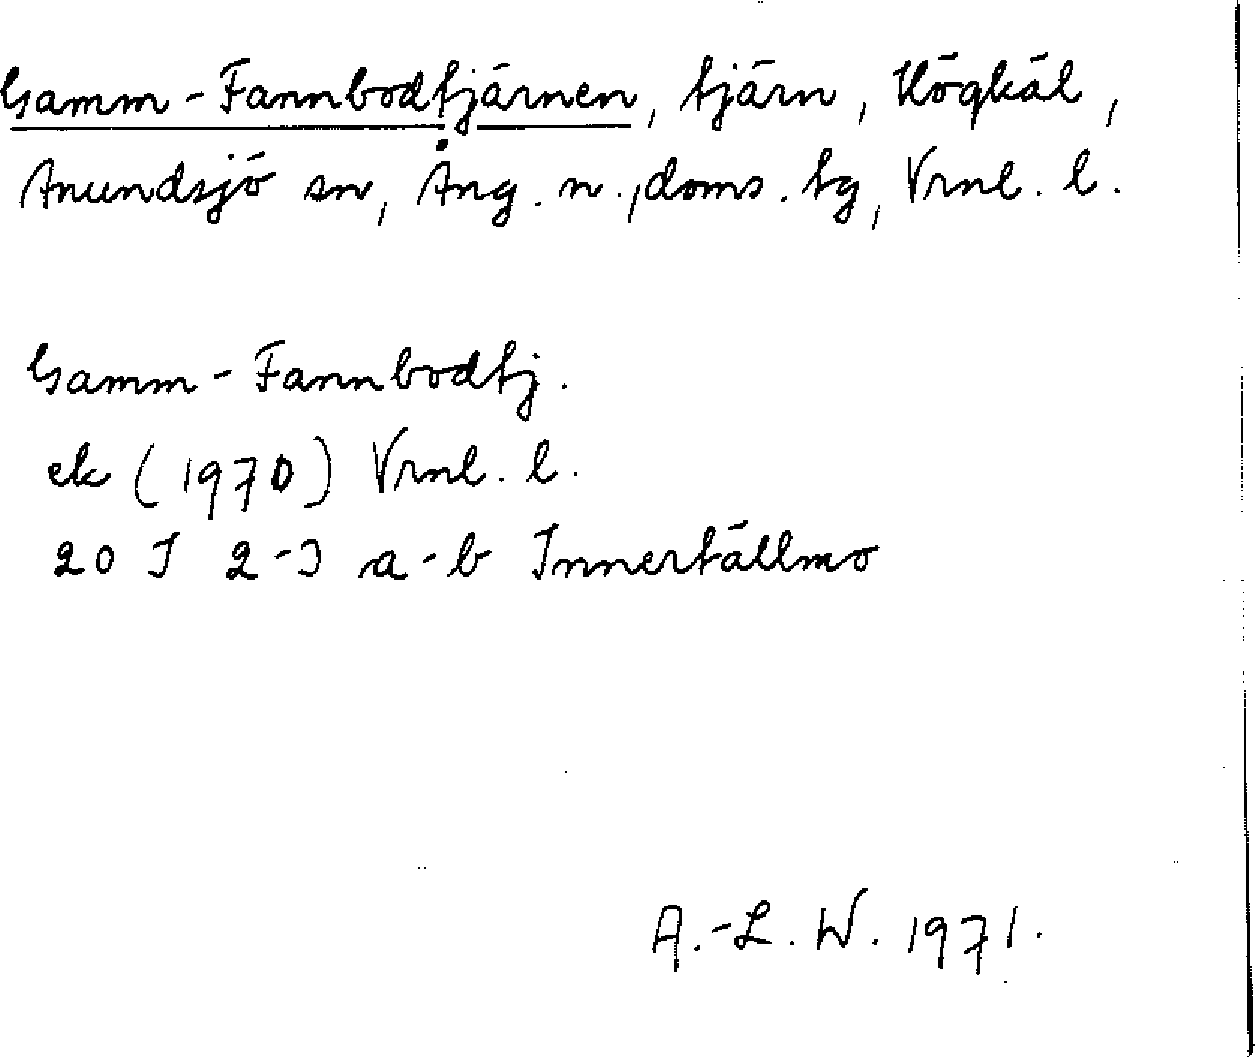 Gamm-Fannbodtjärnen, tjärn, Högkäl,
Anundsjö sn, Ång. n., doms. tg, Vrnl. l.
Gamm-Fannbodtj.
ek (1970) Vrnl. l.
20 J 2-3 a-b Innertällmo
A.-L. W. 1971.